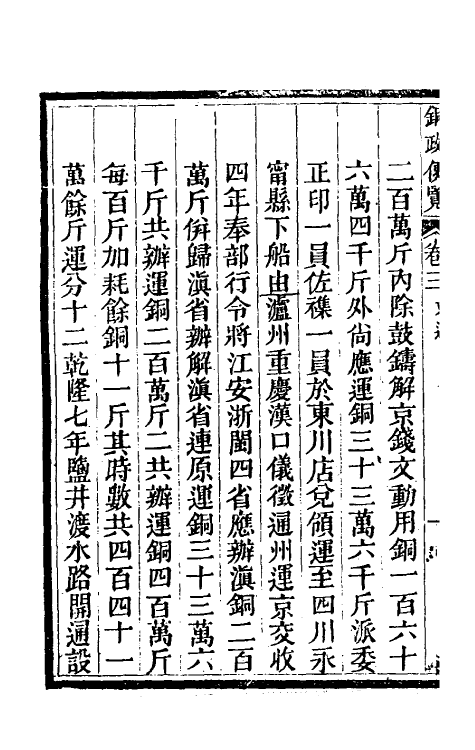 銅政便覽 卷三 京運
二百萬斤內除鼓鑄解京錢文動用銅一百六十
六萬四千斤外尙應運銅三十三萬六千斤派委
正印一員佐襍一員於東川店兌領運至四川永
甯縣下船由瀘州重慶漢口儀徵通州運京交收
四年奉部行令將江安浙閩四省應辦滇銅二百
萬斤倂歸滇省辦解滇省連原運銅三十三萬六
千斤共辦運銅二百萬斤二共辦運銅四百萬斤
每百斤加耗餘銅十一斤其時數共四百四十一
萬餘斤運分十二乾隆七年鹽井渡水路開通設